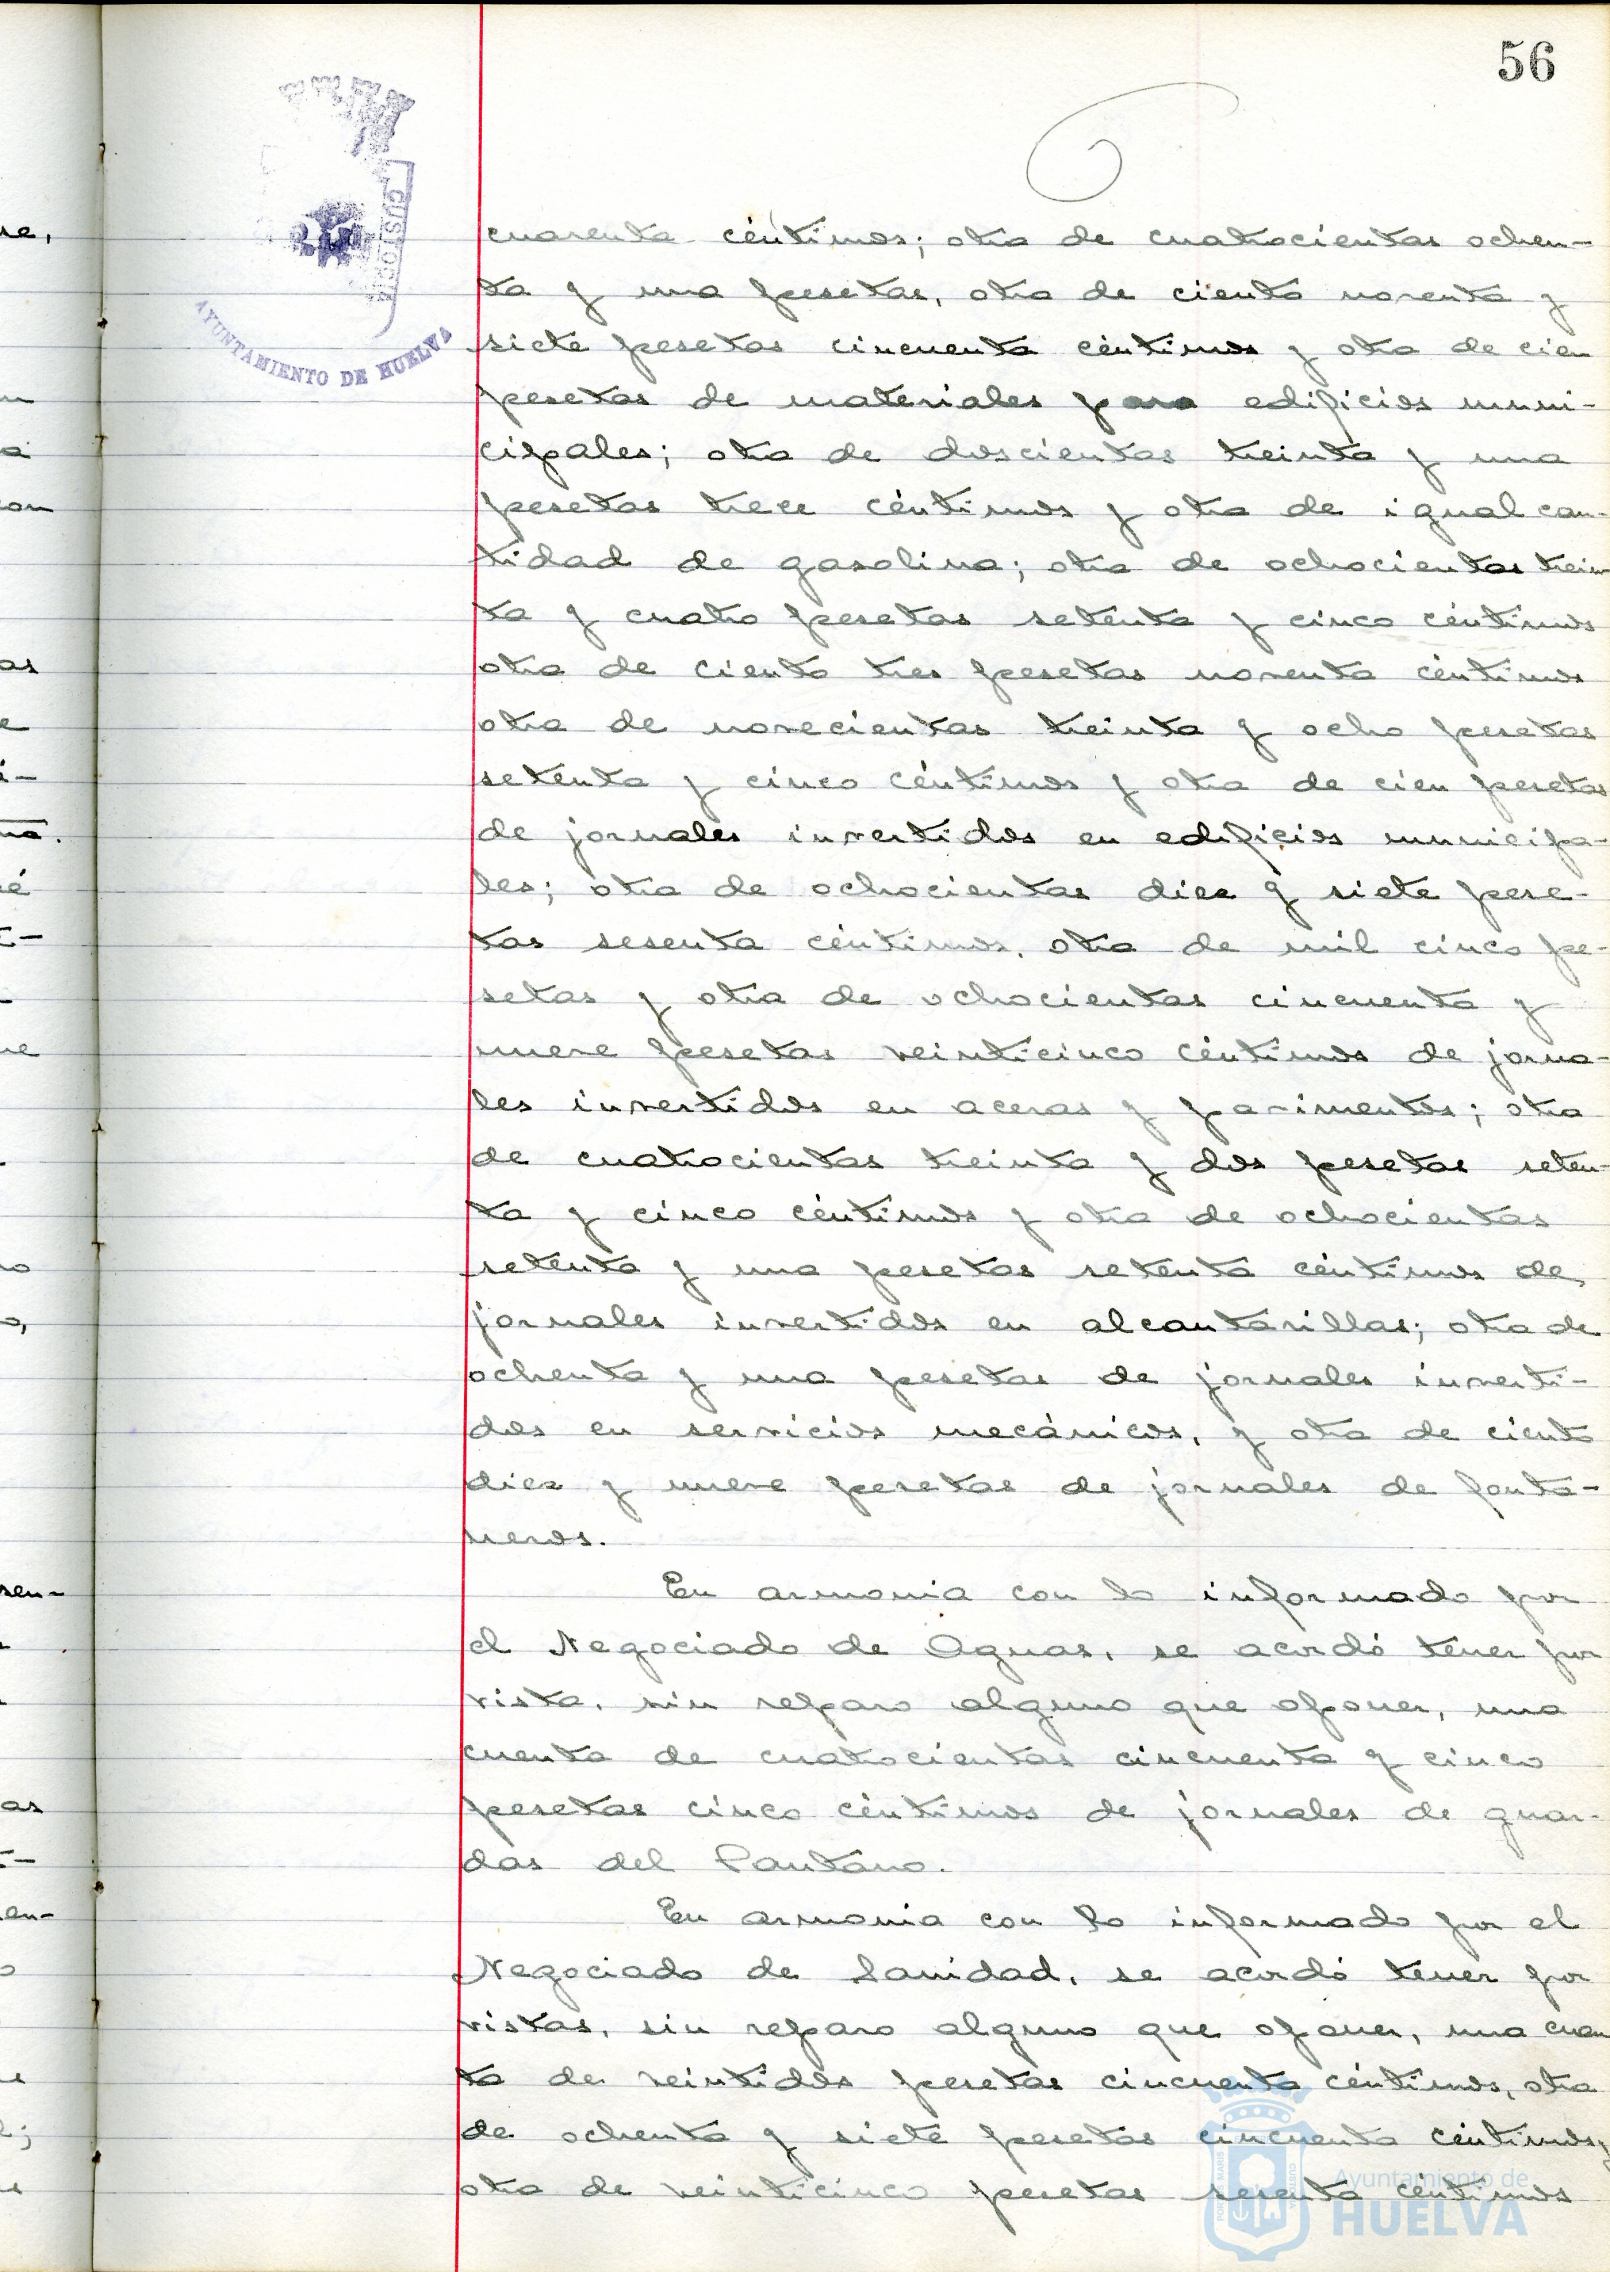 56
CUSTODIA
AYUNTAMIENTO DE HUELVA
cuarenta céntimos; otra de cuatrocientas ochen-
ta y una pesetas, otra de ciento noventa y
siete pesetas cincuenta céntimos y otra de cien
pesetas de materiales para edificios muni-
cipales; otra de doscientas treinta y una
pesetas trece céntimos y otra de igual can-
tidad de gasolina; otra de ochocientas trein-
ta y cuatro pesetas setenta y cinco céntimos
otra de ciento tres pesetas noventa céntimos
otra de novecientas treinta y ocho pesetas
setenta y cinco céntimos y otra de cien pesetas
de jornales invertidos en edificios municipa-
les; otra de ochocientas diez y siete pese-
tas sesenta céntimos, otra de mil cinco pe-
setas y otra de ochocientas cincuenta y
nueve pesetas veinticinco céntimos de jorna-
les invertidos en aceras y pavimentos; otra
de cuatrocientas treinta y dos pesetas seten-
ta y cinco céntimos y otra de ochocientas
setenta y una pesetas setenta céntimos de
jornales invertidos en alcantarillas; otra de
ochenta y una pesetas de jornales inverti-
dos en servicios mecánicos, y otra de ciento
diez y nueve pesetas de jornales de fonta-
neros.
En armonia con lo informado por
el Negociado de Aguas, se acordó tener por
vista, sin reparo alguno que oponer, una
cuenta de cuatrocientas cincuenta y cinco
pesetas cinco céntimos de jornales de guar-
das del Pantano.
En armonia con lo informado por el
Negociado de Sanidad, se acordó tener por
vistas, sin reparo alguno que oponer, una cuen
ta de veintidos pesetas cincuenta céntimos, otra
de ochenta y siete pesetas cincuenta céntimos,
otra de veinticinco pesetas sesenta céntimos
Ayuntamiento de
HUELVA